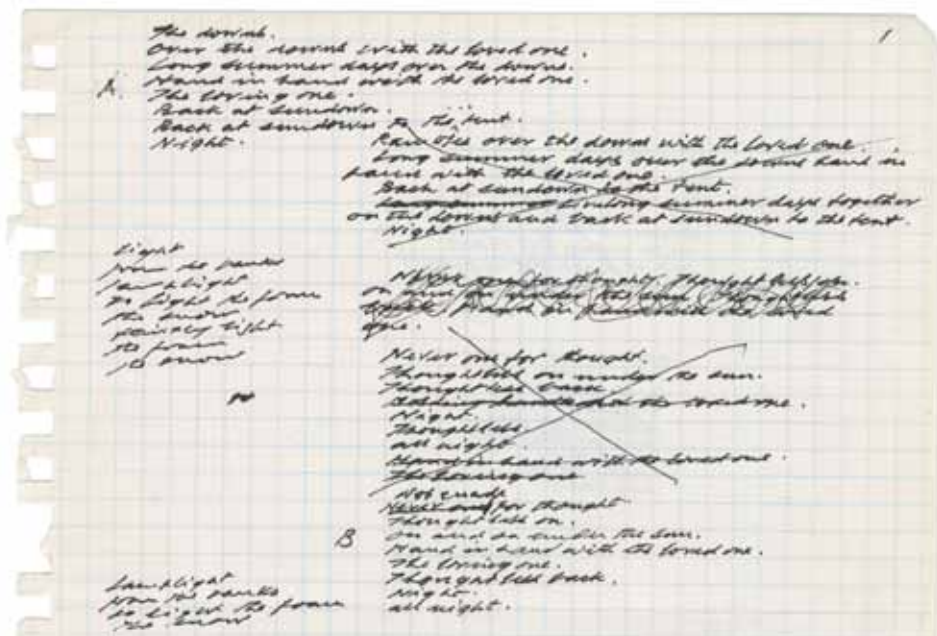 1
The downs.
Over the downs with the loved one.
Long summer days over the downs.
Hand in hand with the loved one.
A.
The loving one.
Back at sundown.
Back at sundown to the tent.
Night.
over the downs with the loved one.
Long summer days over the downs hand in
hand with the loved one.
Back at sundown to the tent.
summer days together
on the downs and back at sundown to the tent.
Night.
light
from the banks
lamplight
to light the foam
the snow
light
the foam
the snow
Never one for thought. Thoughtless
on under the sun. Thoughtless
Hand in hand with the loved
one.
Never one for thought.
Thoughtless on under the sun.
Thoughtless back
hand the loved one.
Night
Thoughtless
all night.
Hand in hand with the loved one.
The loving one
Not made
Never one for thought
Thoughtless on.
On and on under the sun.
B
Hand in hand with the loved one.
The loving one.
Thoughtless back.
Night.
all night.
lamplight
from the banks
to light the foam
the snow